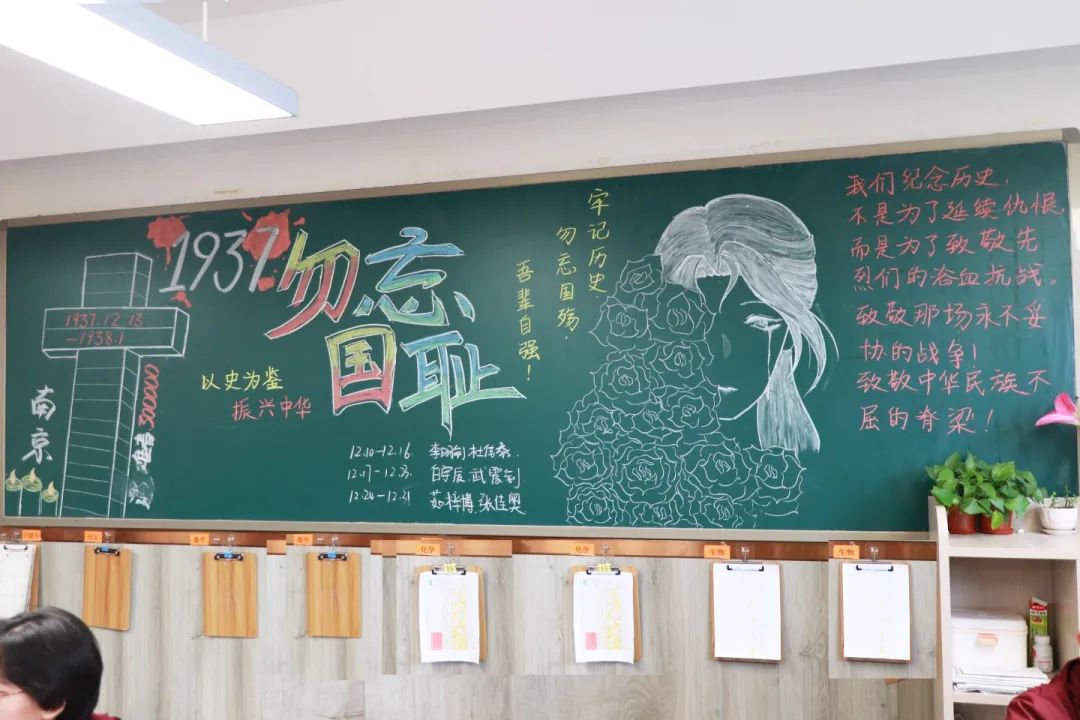 1937
勿忘
国耻
1937.12.13
-1938.1
000000
遇难者
南京
以史为鉴
振兴中华
牢记历史
勿忘国殇,
吾辈自强!
12.10-12.16
12.17-12.23
白宇辰 武震钊
12.24-12.31
茹梓博 张佳奥
我们纪念历史,
不是为了延续仇恨,
而是为了致敬先
烈们的浴血抗战。
致敬那场永不妥
协的战争!
致敬中华民族不
屈的脊梁!
化学
化学
生物
生物